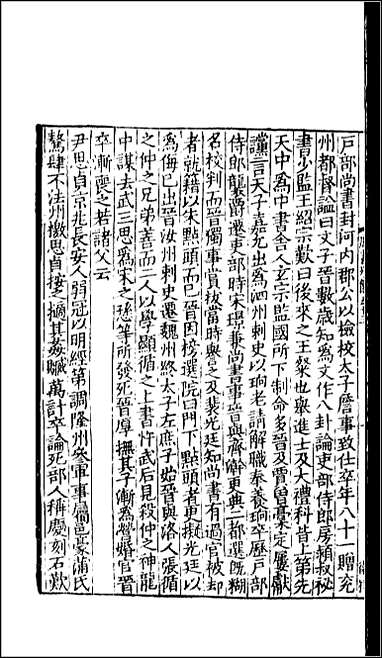 戸部尚書封河内郡公以檢校太子詹事致仕卒年八十一贈兖
州都督諡曰文子晉數歲知爲文作八卦論吏部侍郎房頴叔祕
書少監王紹宗歎曰後來之王粲也舉進士及大禮科皆上第先
天中爲中書舍人玄宗監國所下制命多晉及賈曾稾定屢獻
讜言天子嘉允出爲泗州刺史以珦老請解職奉養珦卒歷戸部
侍郎襲爵遷吏部時宋璟兼尚書事晉與齊澣更典二都選旣糊
名校判而晉獨事賞拔當時譽之及裴光廷知尚書有過官被却
者就籍以朱點頭而已晉因榜選院曰門下點頭者更擬光廷以
爲侮已出晉汝州刺史遷魏州終太子左庶子始晉與洛人張循
之仲之兄弟善而二人以學顯循之上書忤武后見殺仲之神龍
中謀去武三思爲宋之愻等所發死晉厚撫其子漸爲營婚官晉
卒漸喪之若諸父云
尹思貞京兆長安人弱冠以明經第調隆州參軍事屬邑豪蒲氏
驁肆不法州檄思貞按之擿其姦贓萬計卒論死部人稱慶刻石歎